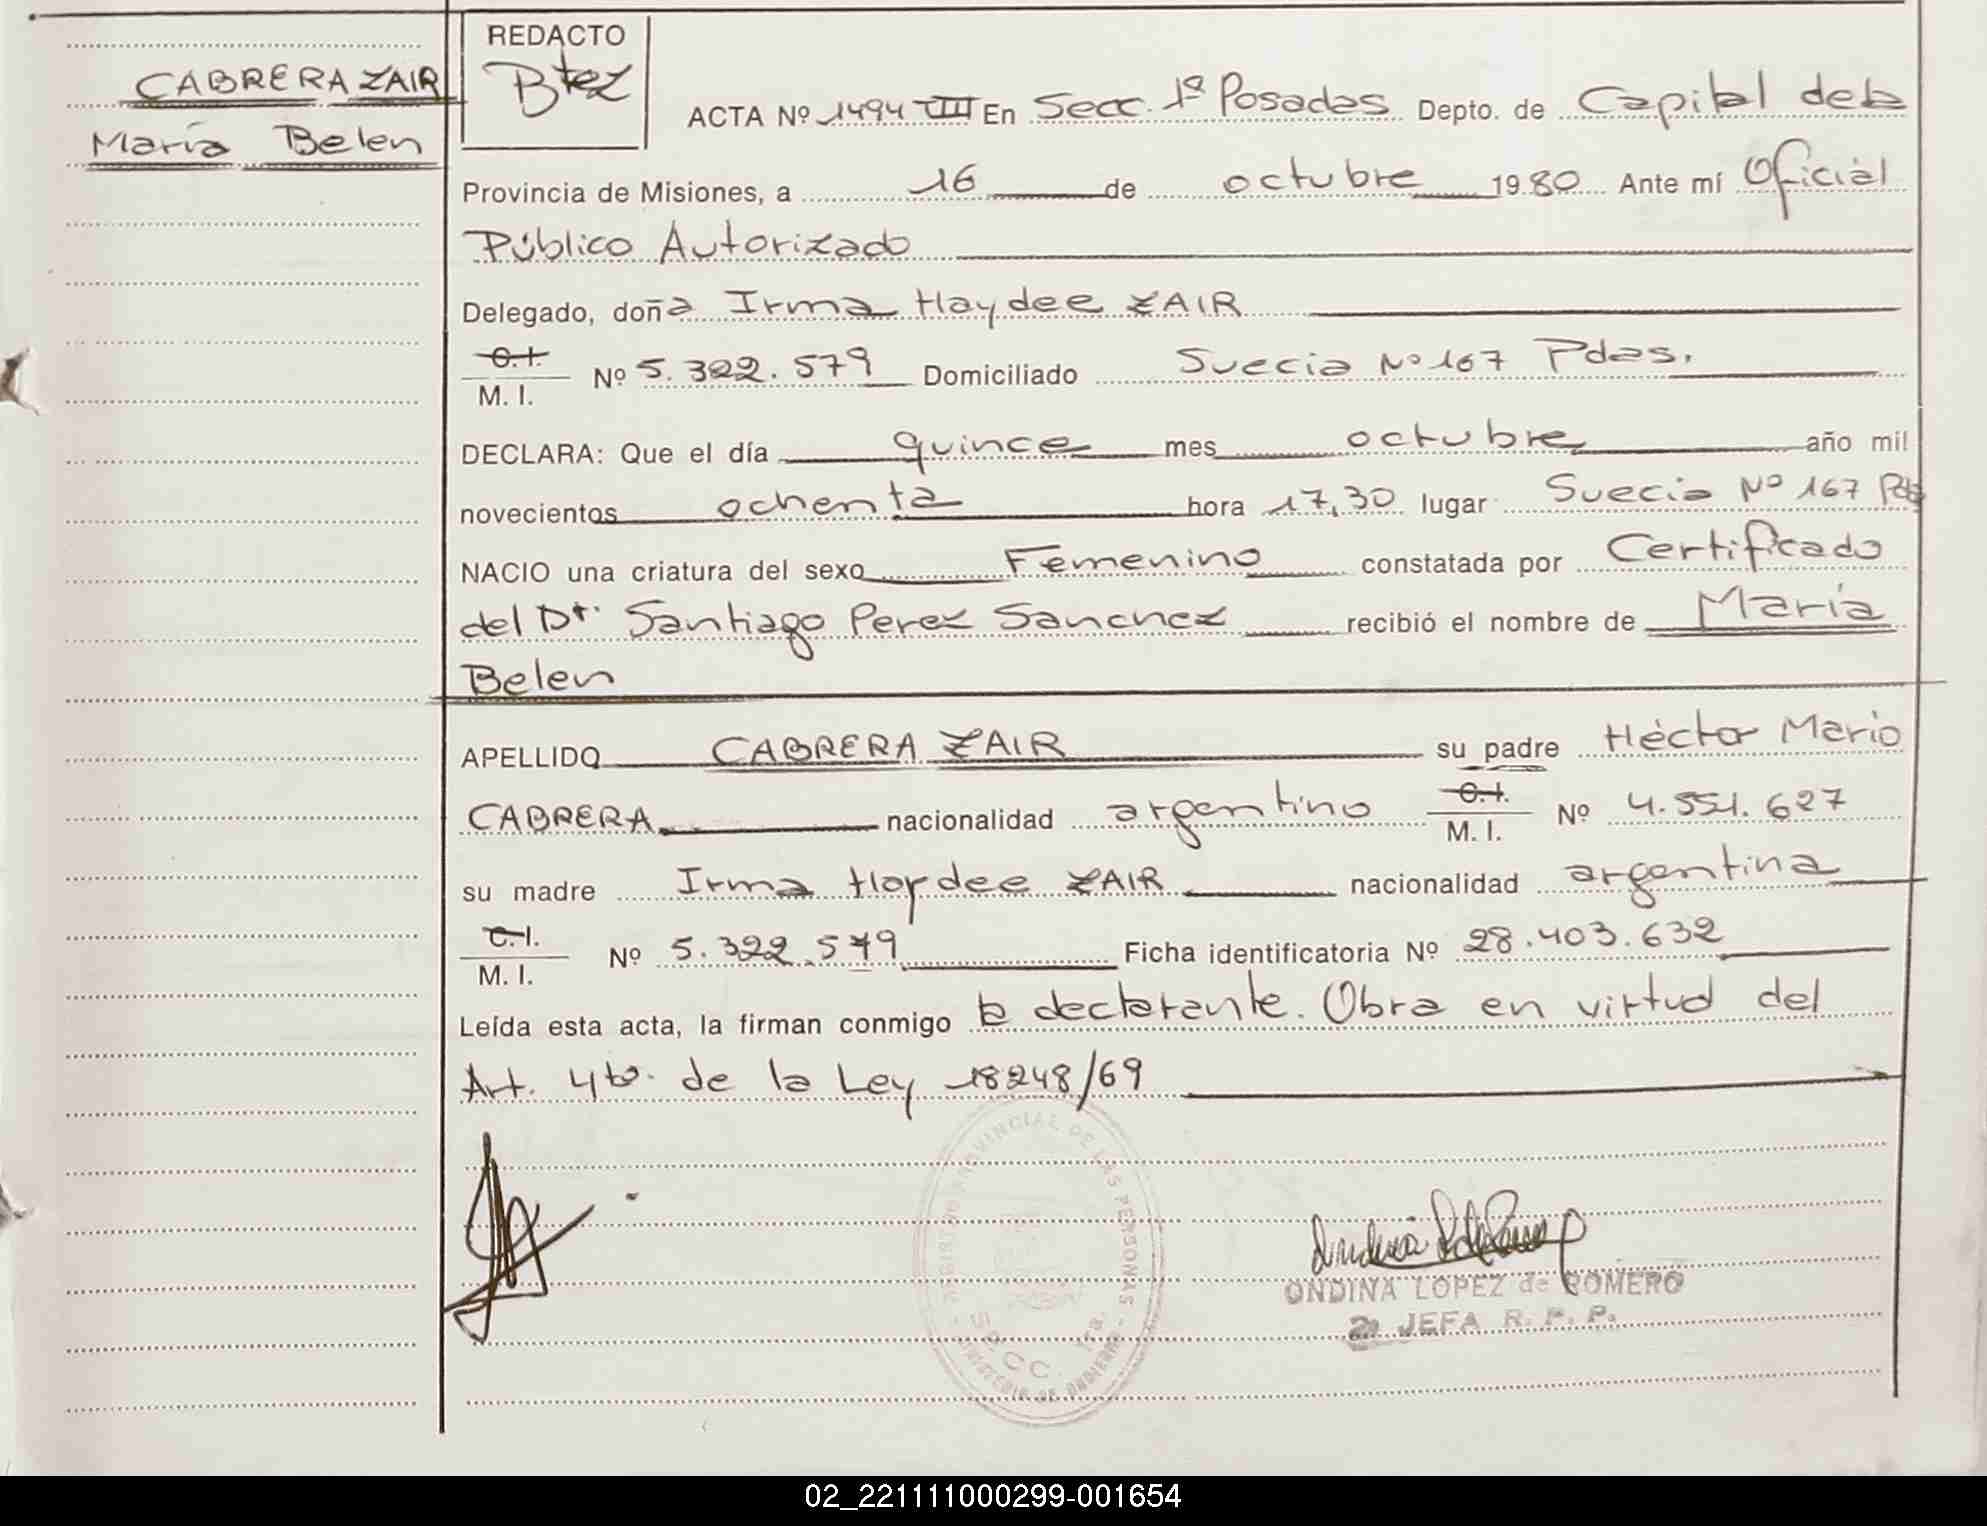 REDACTO
Btez
CABRERA ZAIR
María Belen
ACTA Nº 1494 VIII En Secc. 1ª Posadas Depto. de Capital de la
Provincia de Misiones, a 16 de octubre 1980 Ante mí Oficial
Público Autorizado
Delegado, doña Irma Haydee ZAIR
C.I.
M. I. Nº 5.322.579 Domiciliado Suecia Nº 167 Pdas.
DECLARA: Que el día quince mes octubre año mil
novecientos ochenta hora 17,30 lugar Suecia Nº 167 Pdas
NACIO una criatura del sexo Femenino constatada por Certificado
del Dr. Santiago Perez Sanchez recibió el nombre de María
Belen
APELLIDO CABRERA ZAIR su padre Héctor Mario
CABRERA nacionalidad argentino C.I. M. I. Nº 4.551.627
su madre Irma Haydee ZAIR nacionalidad argentina
C.I.
M. I. Nº 5.322.579 Ficha identificatoria Nº 28.403.632
Leída esta acta, la firman conmigo la declarante. Obra en virtud del
Art. 4to. de la Ley 18248/69
REGISTRO PROVINCIAL DE LAS PERSONAS
SECC. 1ra.
MINISTERIO DE GOBIERNO
ONDINA LOPEZ de ROMERO
2a JEFA R. P. P.
02_221111000299-001654